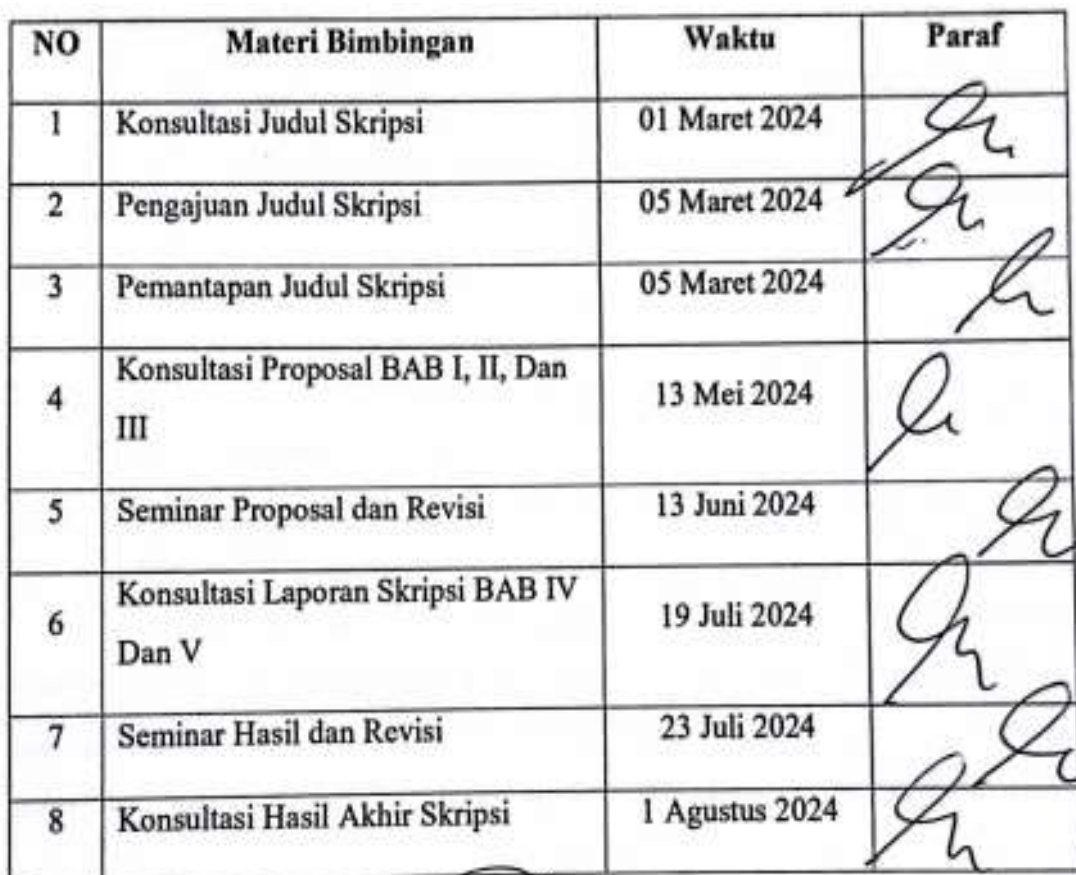 NO Materi Bimbingan Waktu Paraf
1 Konsultasi Judul Skripsi 01 Maret 2024
2 Pengajuan Judul Skripsi 05 Maret 2024
3 Pemantapan Judul Skripsi 05 Maret 2024
4 Konsultasi Proposal BAB I, II, Dan
III 13 Mei 2024
5 Seminar Proposal dan Revisi 13 Juni 2024
6 Konsultasi Laporan Skripsi BAB IV
Dan V 19 Juli 2024
7 Seminar Hasil dan Revisi 23 Juli 2024
8 Konsultasi Hasil Akhir Skripsi 1 Agustus 2024